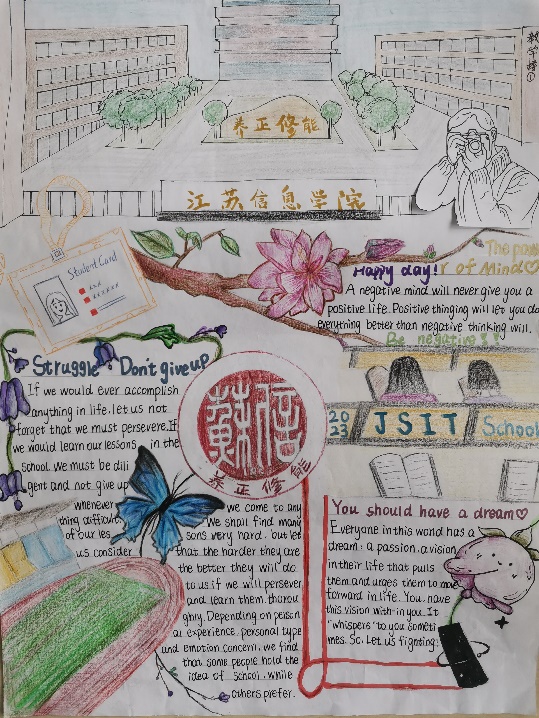 教学楼①
养正修能
江苏信息学院
Student Card
The pow
Happy day! r of Mind
A negative mind will never give you a
positive life. Positive thinging will let you do
everything better than negative thinking will.
Be negative!!
Struggle Don't give up
If we would ever accomplish
anything in life. let us not
forget that we must persevere. If
we would learn our lessons in the
school. We must be dili
gent and not give up
whenever we come to any
thing difficult. We shall find many
of our les sons very hard. but let
us consider that the harder they are
the better they will do
to us if we will persever
and learn them thorou
ghly. Depending on person
al experience. personal type
and emotion concern. we find
that some people hold the
idea of school. while
others prefer.
蘇信
养正修能
2023 JSIT School
You should have a dream
Everyone in this world has a
dream: a passion, a vision
in their life that puls
them and urges them to move
forward in life. You have
this vision with-in you. It
"whispers" to you someti
mes. So. Let us fighting!